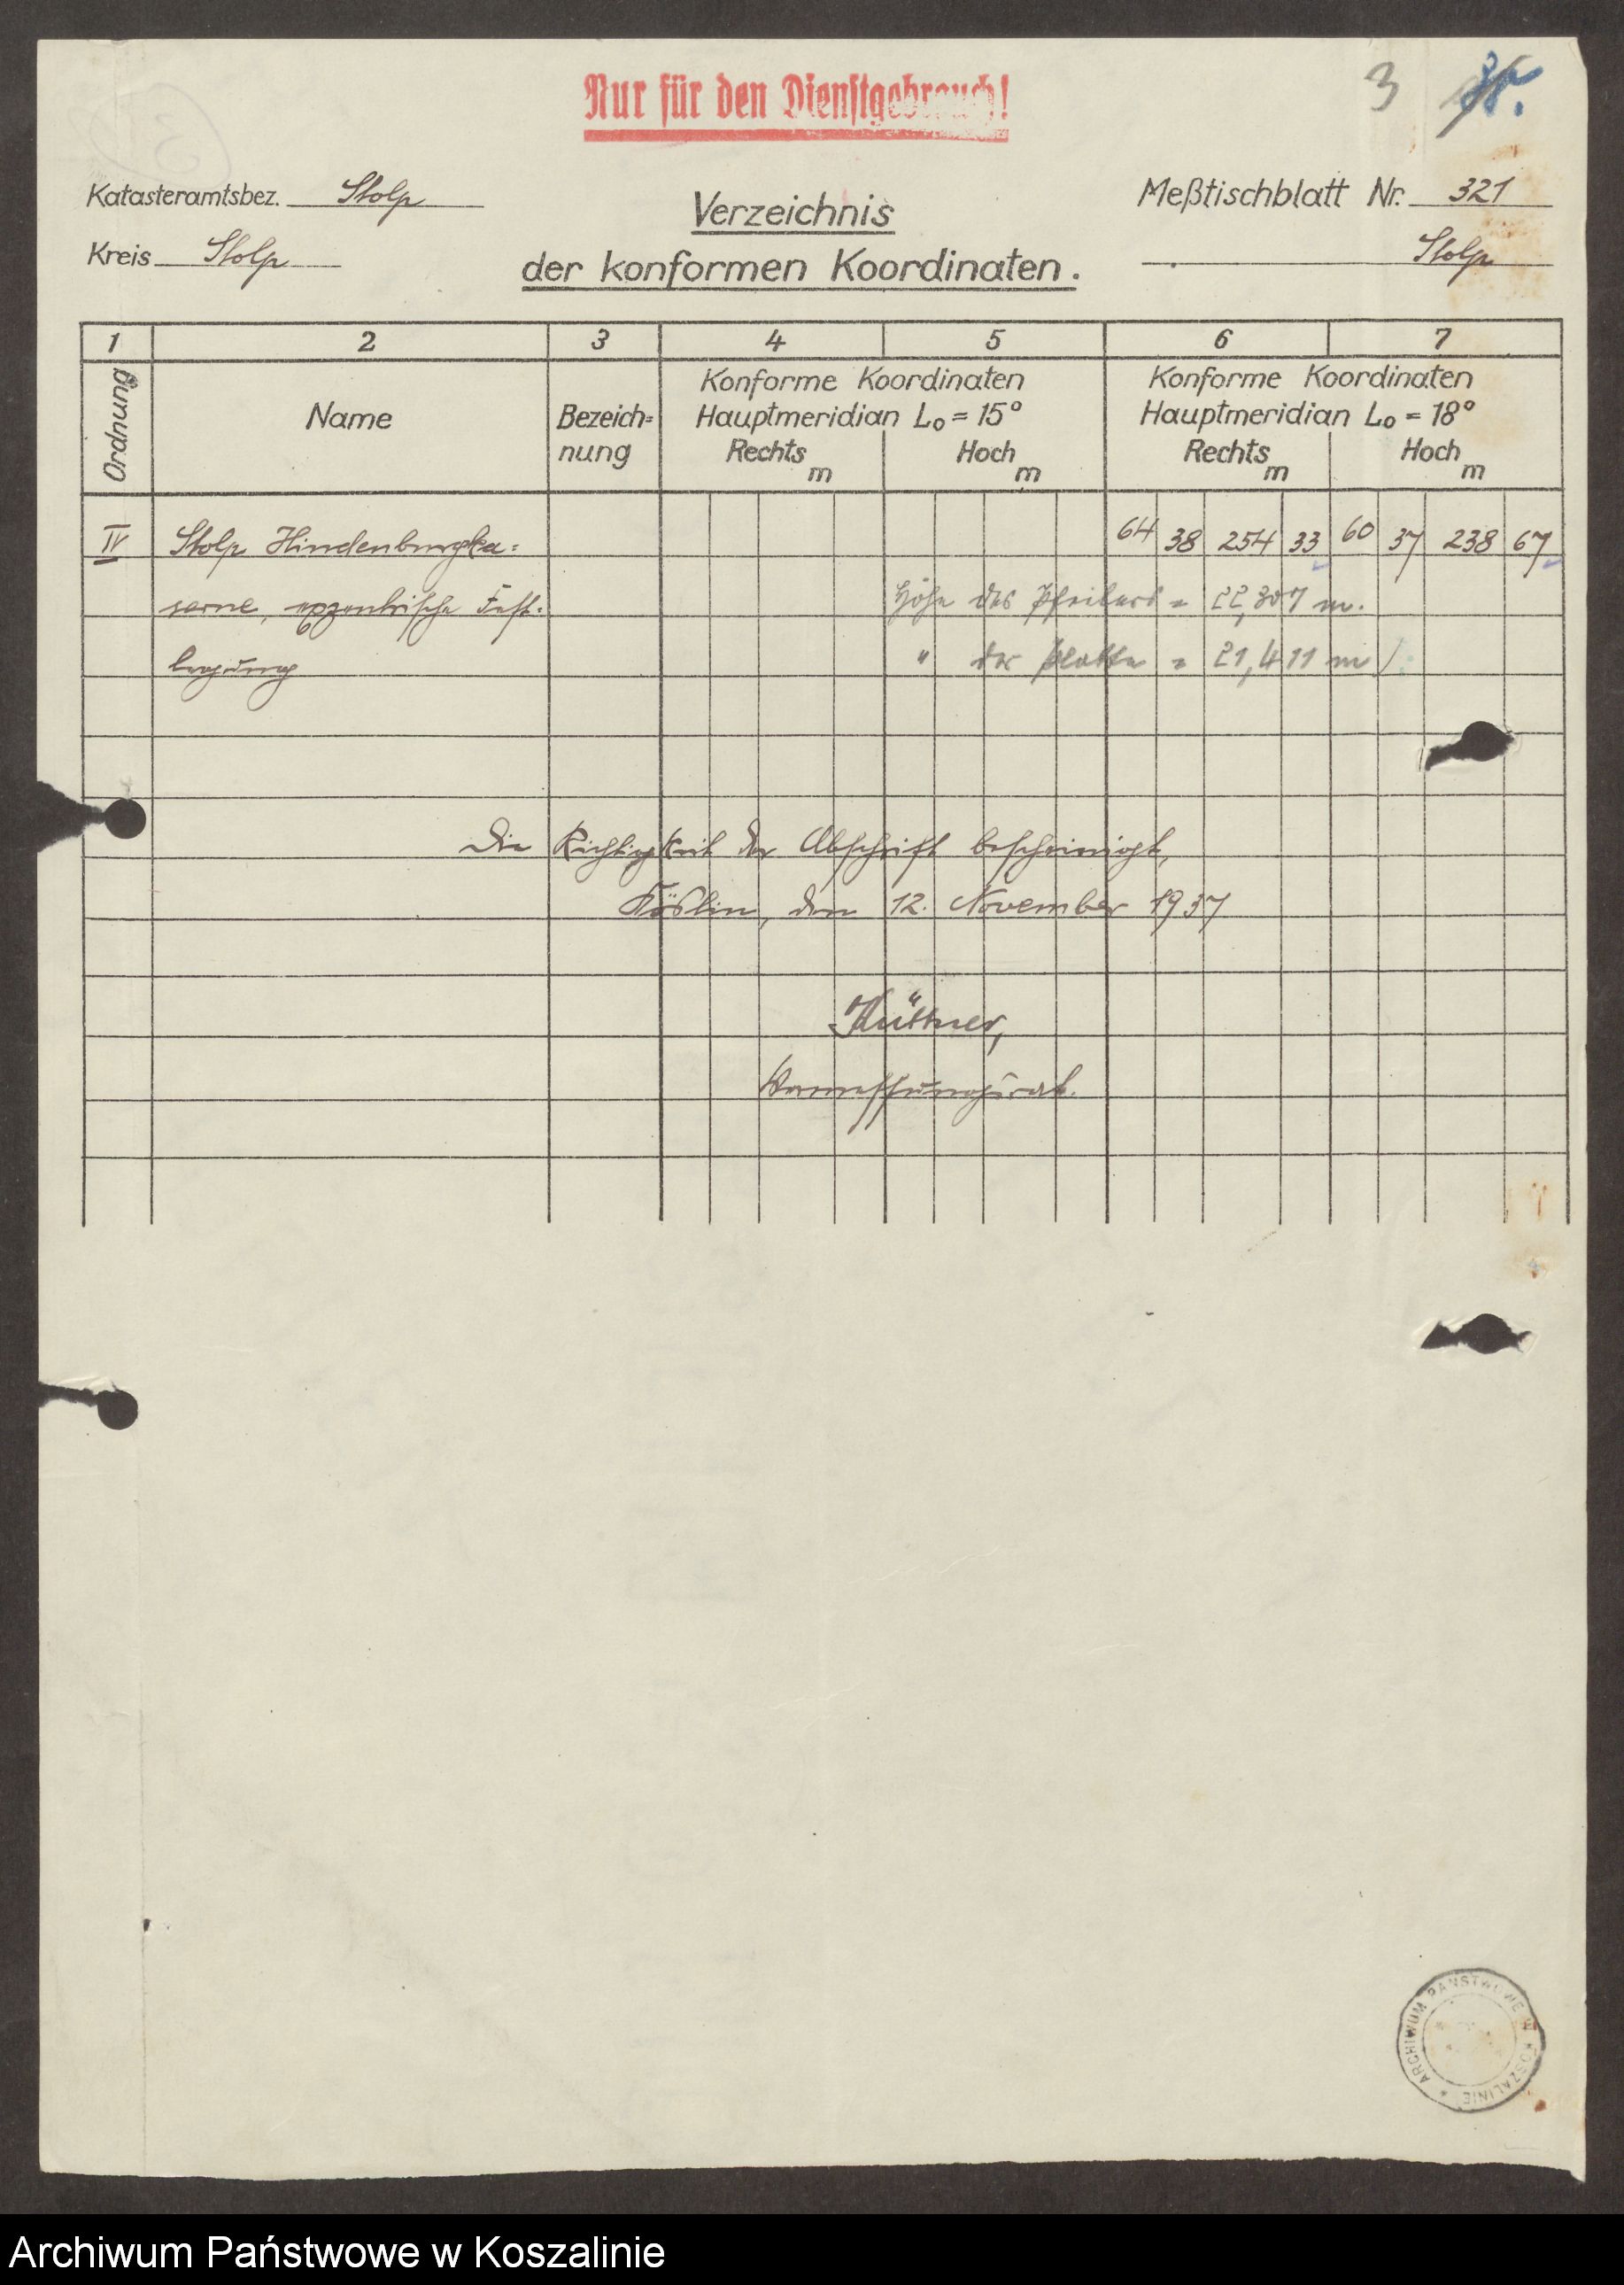 Nur für den Dienstgebrauch!
3
Katasteramtsbez. Stolp
Kreis Stolp
Verzeichnis
der konformen Koordinaten.
Meßtischblatt Nr. 321
Stolp
1 2 3 4 5 6 7
Ordnung
Name
Bezeich=
nung
Konforme Koordinaten
Hauptmeridian Lo = 15°
Rechts m Hoch m
Konforme Koordinaten
Hauptmeridian Lo = 18°
Rechts m Hoch m
IV Stolp Hindenburgka= 64 38 254 33 60 37 238 67
serne, exzentrische Fest=
Höhe des Pfeilers = 22,307 m.
legung
" der Platte = 21,411 m
Die Richtigkeit der Abschrift bescheinigt,
Köslin, den 12. November 1937
Hüttner,
Vermessungsrat.
ARCHIWUM PAŃSTWOWE W KOSZALINIE
Archiwum Państwowe w Koszalinie